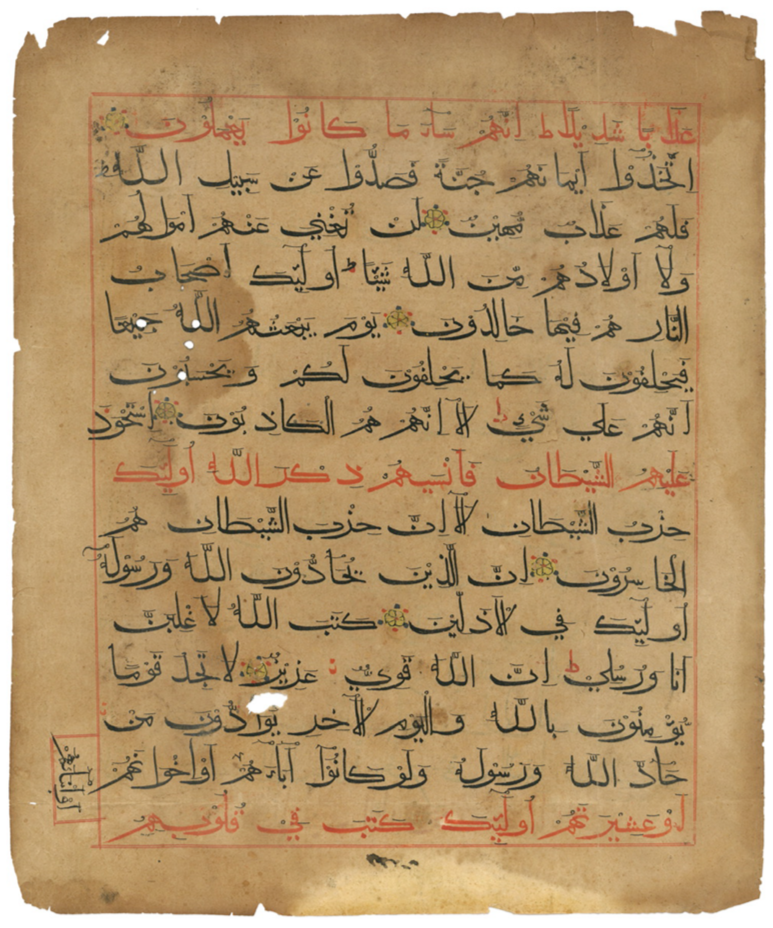 عذابا شديدا ط انهم ساء ما كانوا يعملون
اتخذوا ايمانهم جنة فصدوا عن سبيل الله
فلهم عذاب مهين لن تغني عنهم اموالهم
ولا اولادهم من الله شيئا ط اوليك اصحاب
النار هم فيها خالدون يوم يبعثهم الله جميعا
فيحلفون له كما يحلفون لكم ويحسبون
انهم علي شيء ط الا انهم هم الكاذبون استحوذ
عليهم الشيطان فانسيهم ذكر الله اوليك
حزب الشيطان الا ان حزب الشيطان هم
الخاسرون ان الذين يحادون الله ورسوله
اوليك في الاذلين كتب الله لاغلبن
انا ورسلي ط ان الله قوي عزيز لا تجد قوما
يومنون بالله واليوم الاخر يوادون من
حاد الله ورسوله ولو كانوا اباءهم او اخوانهم
او ابناءهم
او عشيرتهم اوليك كتب في قلوبهم